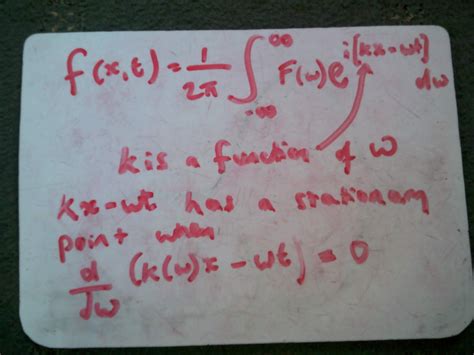 f(x,t) = 1/2π ∫_{-∞}^{∞} F(ω) e^{i[kx-ωt]} dω
k is a function of ω
kx-ωt has a stationary
point when
d/dω (k(ω)x - ωt) = 0